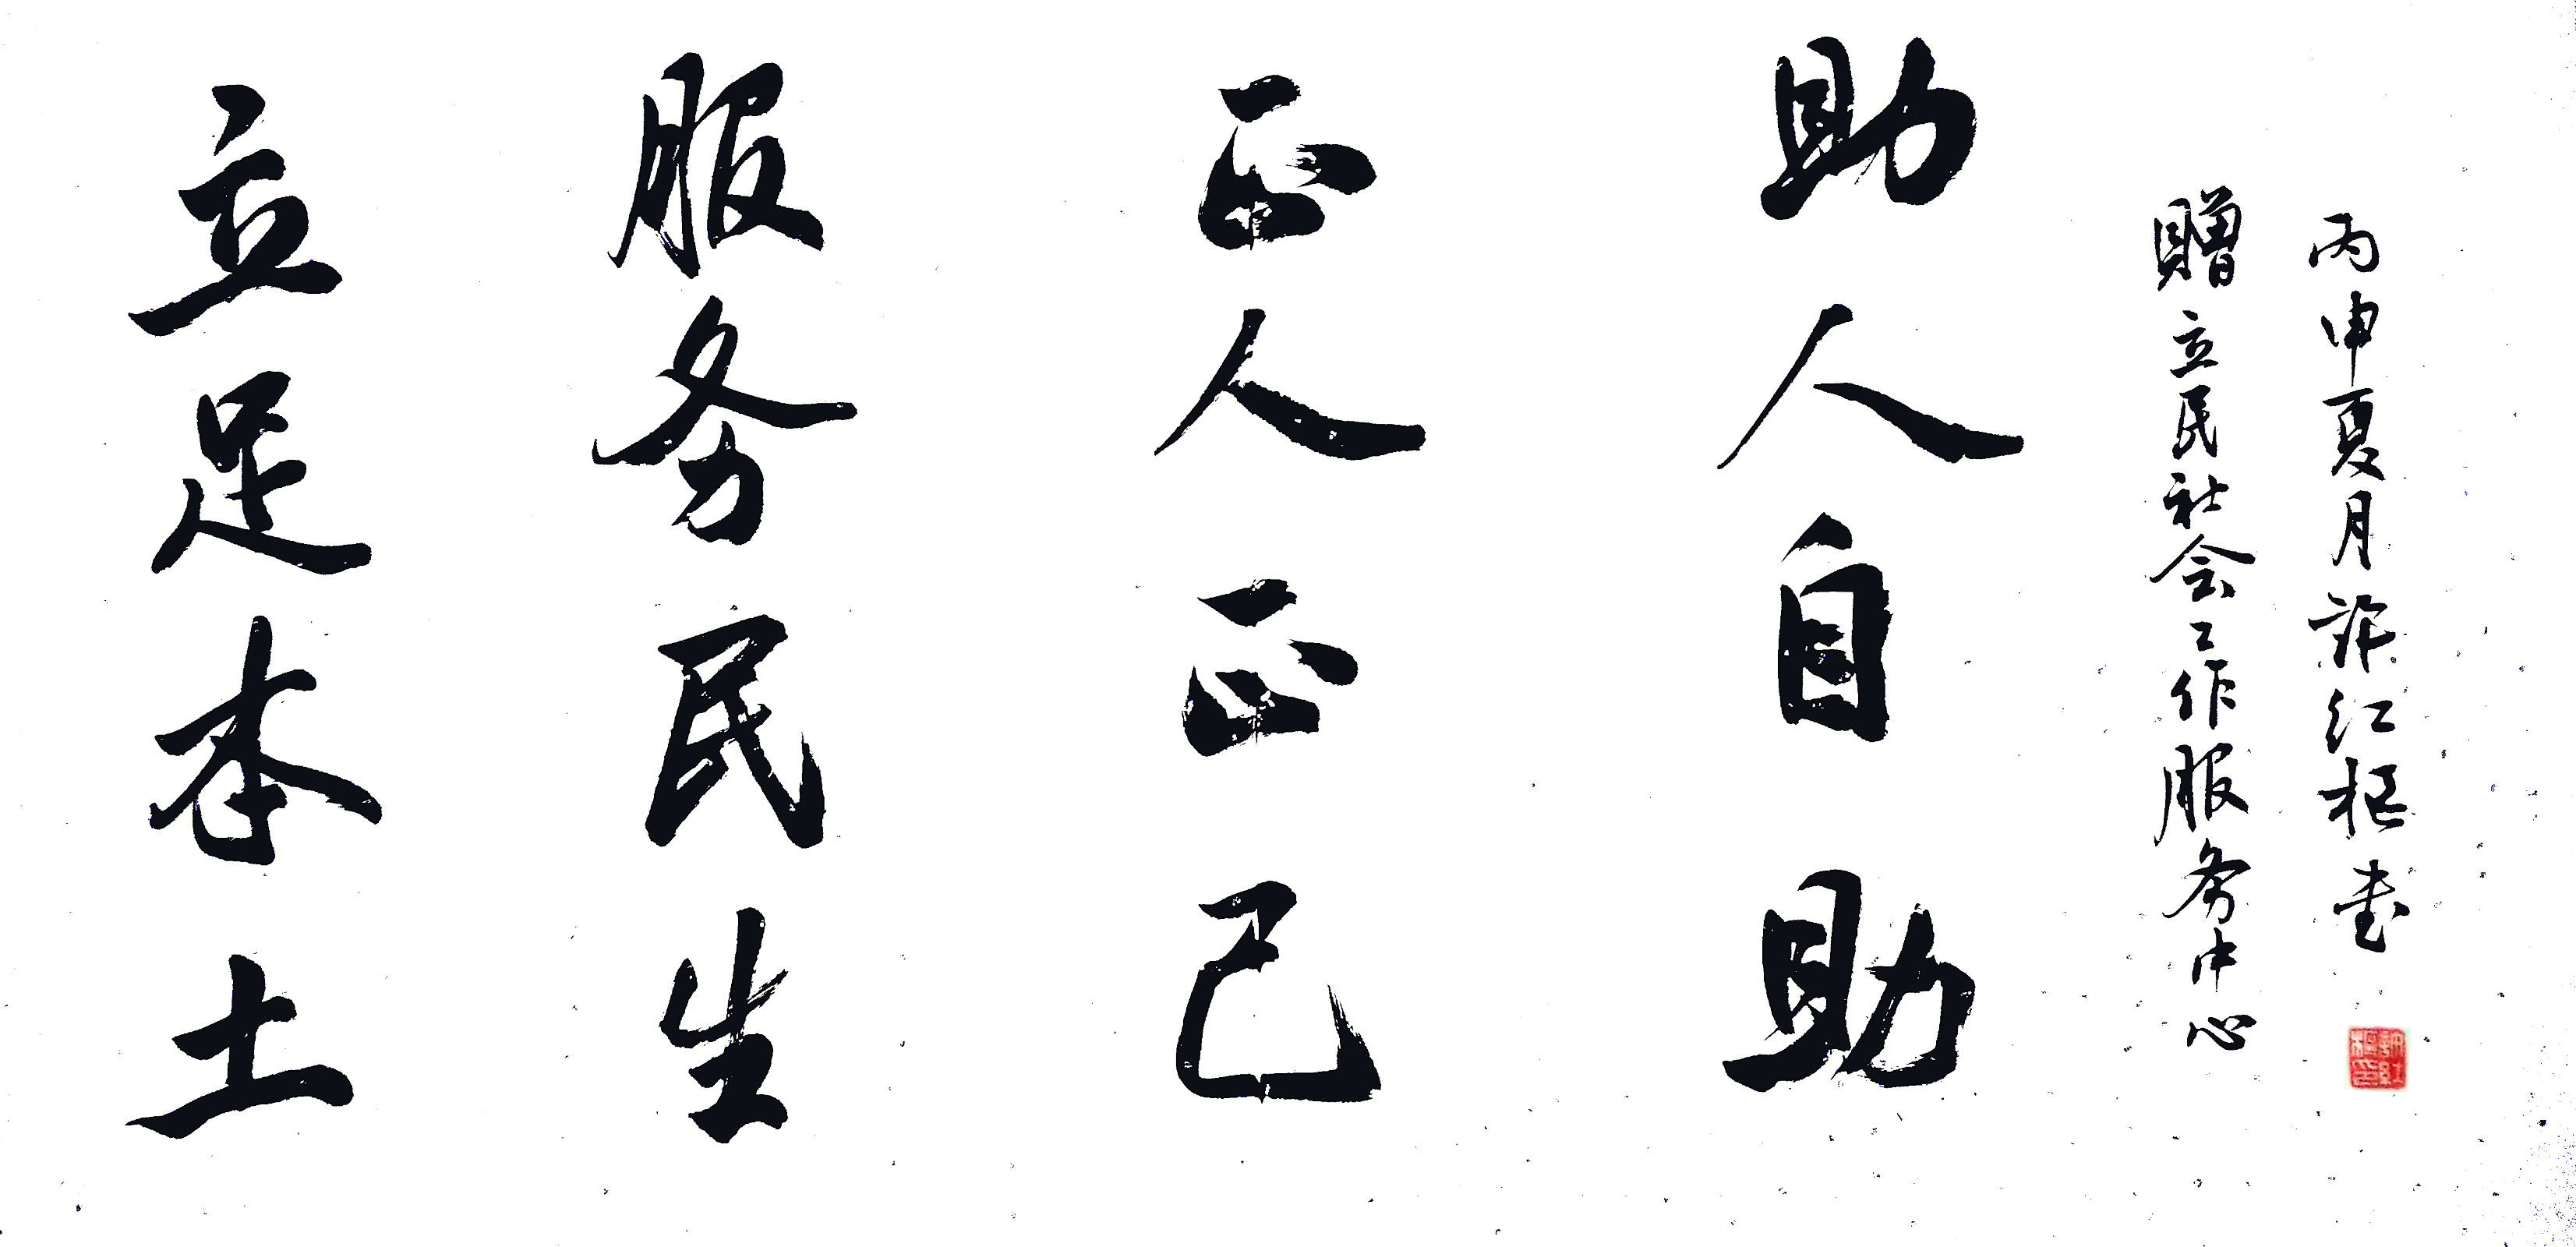 立足本土
服务民生
正人正己
助人自助
贈立民社会工作服务中心
丙申夏月許红枢书